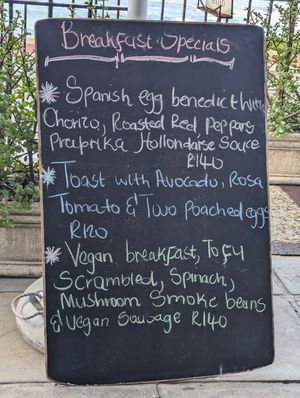 Breakfast Specials
Spanish egg benedict with
Chorizo, Roasted Red Peppers
Praprika Hollondaise Sauce
R140
Toast with Avocado, Rosa
Tomato & Two Poached eggs
R120
Vegan breakfast, Tofu
Scrambled, Spinach,
Mushroom Smoke beans
& Vegan Sausage R140